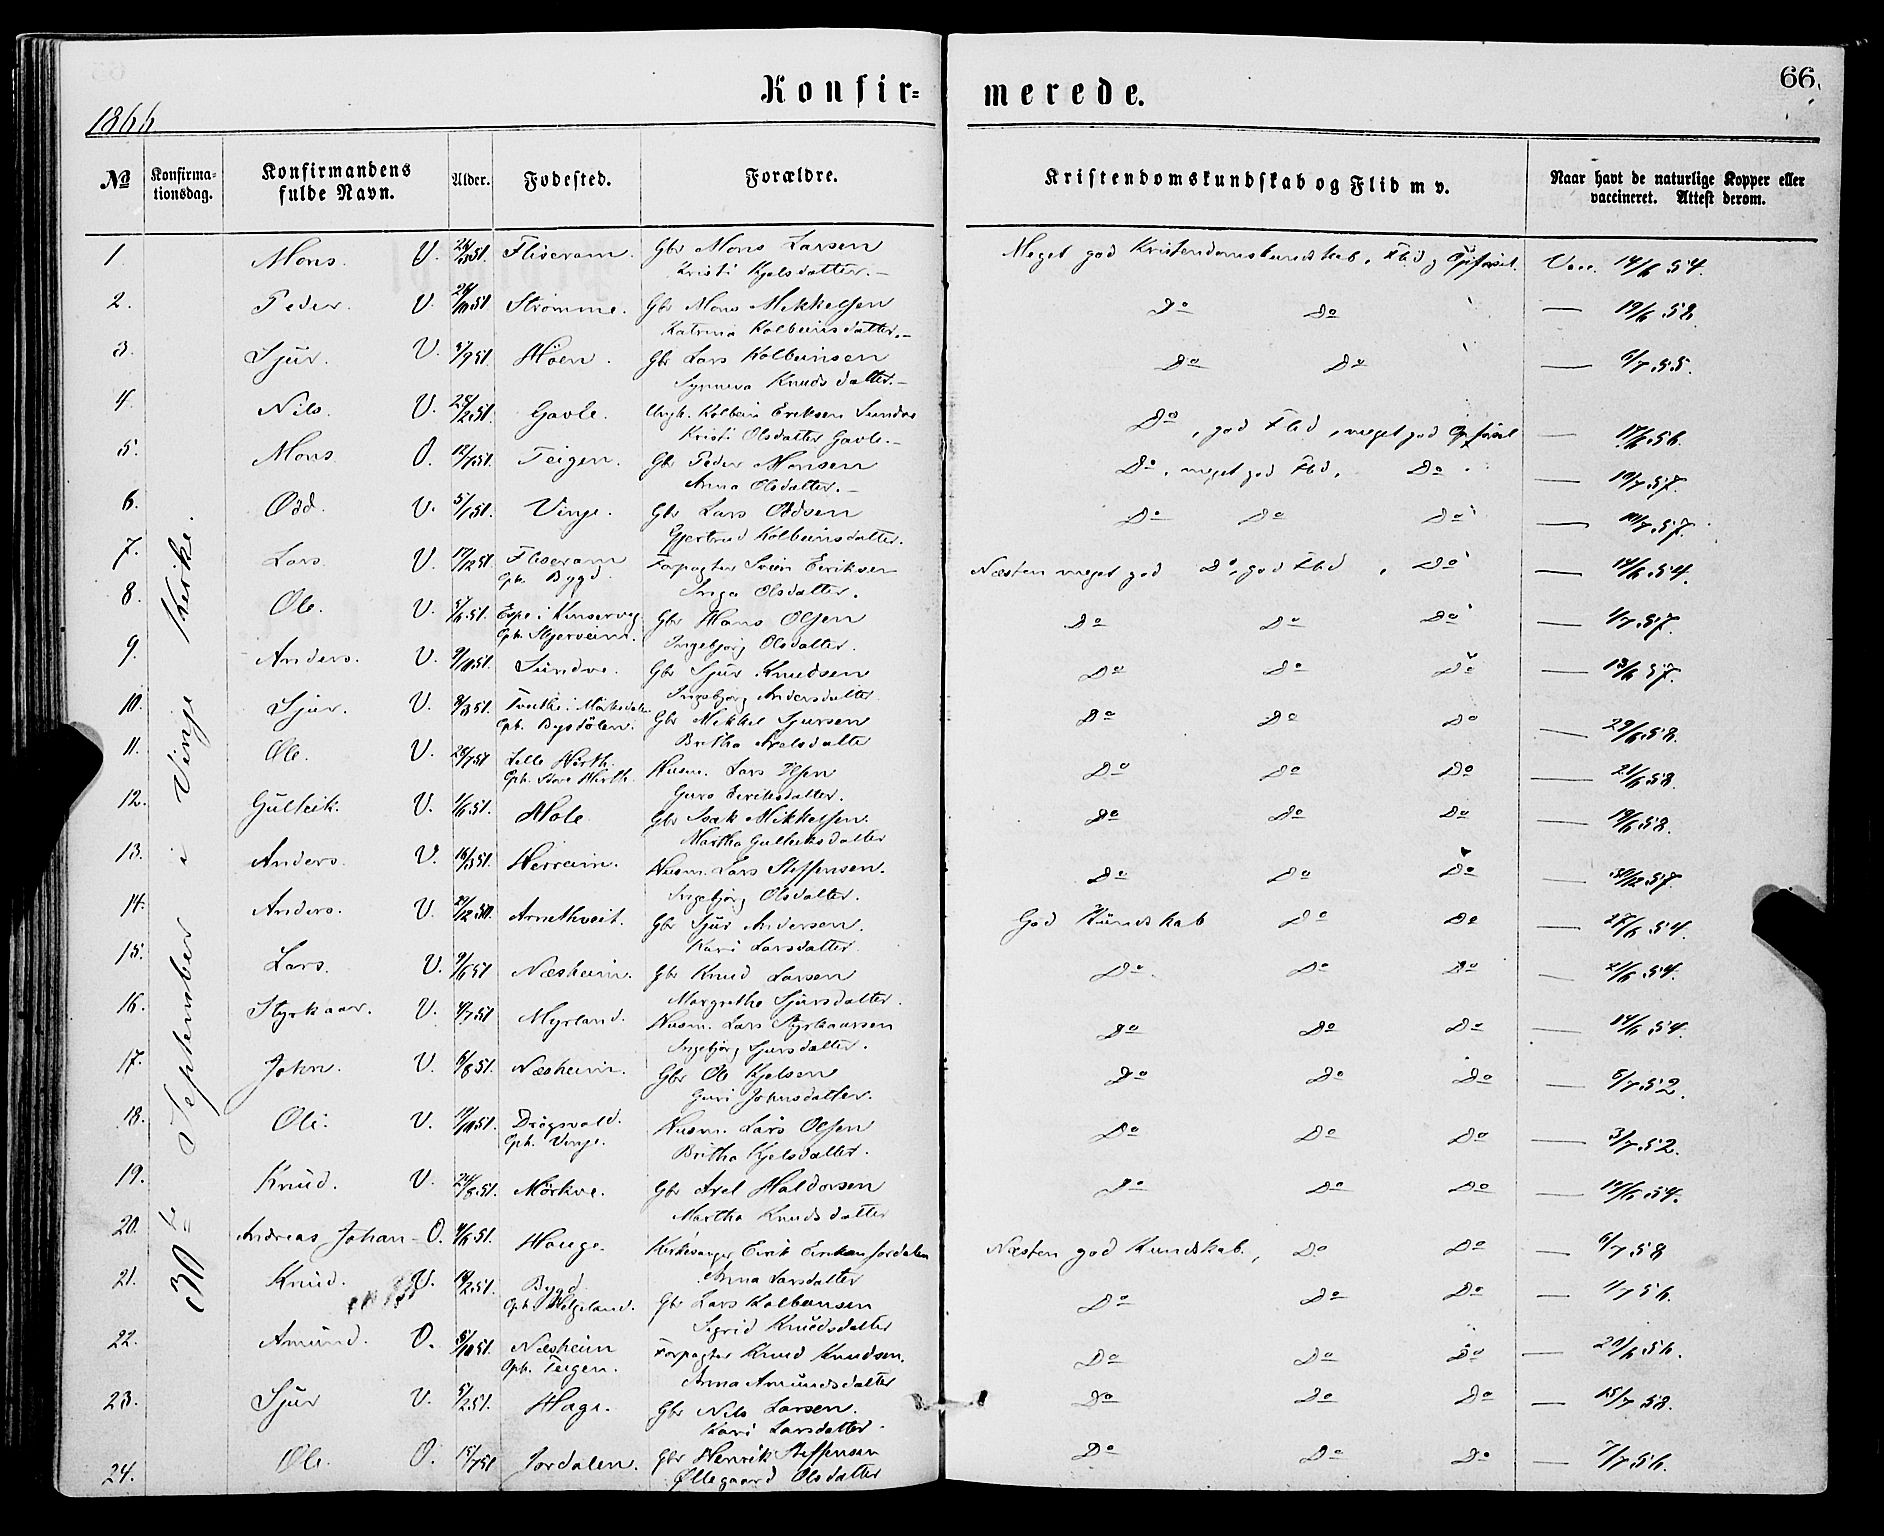 Konfir= merede.
66.
1866
No Konfirma-tionsdag. Konfirmandens fulde Navn. Alder. Fodested. Forældre. Kristendomskundskab og Flid m v. Naar havt de naturlige Kopper eller vaccineret. Attest derom.
30te September i Vinje Kirke.
1. Mons. V. 51. Fliseram. Gbr Mons Larsen Meget god Kristendomskundskab, Flid g Opførsel. Vacc. 14/6 54.
Kristi Kjelsdatter.—
2. Peder. V. 24/10 51 Strømme. Gbr Mons Mikkelsen Do Do — 19/6 58.
Katrina Kolbeinsdatter.—
3. Sjur. V. 5/9 51. Höen. Gbr Lars Kolbeinsen Do Do — 6/7 55.
Synneva Knudsdatter.—
4. Nils. V. 28/2 51. Gavle. Ungk. Kolbein Eriksen Sundve Do, god Flid, meget god Opførsel — 17/6 56.
Kristi Olsdatter Gavle.—
5. Mons. O. 12/7 51. Teigen. Gbr Peder Monsen Do, meget god Flid, Do — 10/7 57.
Anna Olsdatter.—
6. Odd. V. 5/1 51. Vinje. Gbr Lars Oddsen Do Do Do — 10/7 57.
Gjertrud Kolbeinsdatter.
7. Lars. V. 17/12 51 Fliseram Forpagter Svein Eeriksen Næsten meget god Do, god Flid, Do — 14/6 54.
Oph. Bygd. Inga Olsdatter.
8. Ole. V. 5/6 51. Espe i Kinservig Gbr Hans Olsen Do Do Do — 1/7 57.
Oph. Stjerveim. Ingebjørg Olsdatter.
9. Anders. V. 9/10 51. Sundve. Gbr Sjur Knudsen Do Do Do — 13/6 57.
Ingebjørg Andersdatter
10. Sjur. V. 9/3 51. Tveithe i Gbr Mikkel Sjursen Do Do Do — 29/6 58.
Oph. Bygdölen. Britha Axelsdatter
11. Ole. V. 28/7 51 Lille Hirth. Husm. Lars Olsen Do Do Do — 21/6 58.
Oph. Store Hirth. Guro Eeriksdatter.
12. Gulleik. V. 1/6 51. Mole Gbr Isak Mikkelsen. Do Do Do — 19/6 58.
Martha Gulleiksdatter
13. Anders. V. 16/3 51. Herreim. Husm. Lars Steffensen. Do Do Do — 30/12 57.
Ingebjørg Olsdatter.
14. Anders. V. 29/12 50. Arnethveit. Gbr Sjur Andersen. God Kundskab Do Do — 27/6 54.
Kari Larsdatter.
15. Lars. V. 9/6 51 Næsheim. Gbr Knud Larsen Do. Do Do — 21/6 54.
Margrethe Sjursdatter.
16. Styrkaar. V. 4/7 51 Myrland. Husm. Lars Styrkaarsen Do Do Do — 14/6 54.
Ingebjørg Sjursdatter.
17. John. V. 6/8 51. Næsheim. Gbr Ole Kjelsen Do Do Do — 5/7 52.
Guri Johnsdatter.
18. Ole. V. 51. Drögsvold. Husm. Lars Olsen Do Do Do — 3/7 52.
Oph. Vinje. Britha Kjelsdatter.
19. Knud. V. 24/8 51. Mörkve. Gbr Axel Haldorsen Do Do Do — 14/6 54.
Martha Knudsdatter
20. Andreas Johan— O. 4/6 51. Hauge. Kirkesanger Eirik Eeriksen Jordalen Næsten god Kundskab, Do Do — 6/7 58
Anna Larsdatter
21. Knud. V. 14/2 51. Bygd Gbr Lars Kolbeinsen Do Do Do — 1/7 56.
Oph. Helgeland. Sigrid Knudsdatter
22. Amund. O. 5/10 51. Næsheim Forpagter Knud Knudsen. Do Do Do — 21/6 56.
Oph. Teigen. Anna Amundsdatter
23. Sjur V. 5/2 51. Hage. Gbr Nils Larsen. Do Do Do — 15/7 58.
Kari Larsdatter.
24. Ole. O. 15/7 51 Jordalen. Gbr Henrik Steffensen Do Do Do — 7/7 56.
Øllegaard Olsdatter